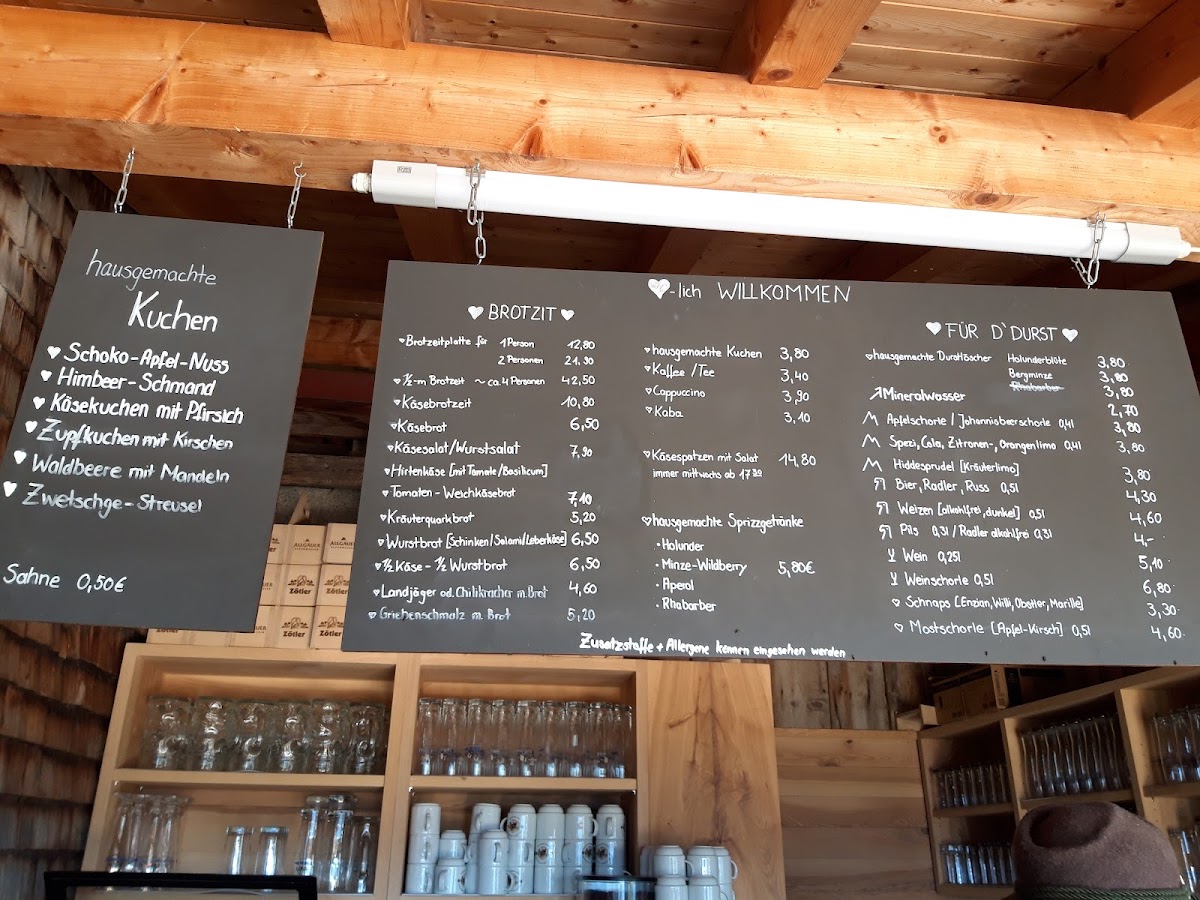 hausgemachte
Kuchen
Schoko-Apfel-Nuss
Himbeer-Schmand
Käsekuchen mit Pfirsich
Zupfkuchen mit Kirschen
Waldbeere mit Mandeln
Zwetschge-Streusel
Sahne 0,50€
-lich WILLKOMMEN
BROTZIT
Brotzeitplatte für 1 Person 12,80
2 Personen 21,90
½-m Brotzeit ~ ca. 4 Personen 42,50
Käsebrotzeit 10,80
Käsebrot 6,50
Käsesalat/Wurstsalat 7,90
Hirtenkäse [mit Tomate/Basilicum]
Tomaten-Weichkäsebrot 7,10
Kräuterquarkbrot 5,20
Wurstbrot [Schinken/Salami/Leberkäse] 6,50
½ Käse-½ Wurstbrot 6,50
Landjäger od. Chilikracher m. Brot 4,60
Griebenschmalz m. Brot 5,20
hausgemachte Kuchen 3,80
Kaffee /Tee 3,40
Cappuccino 3,90
Kaba 3,10
Käsespatzen mit Salat 14,80
immer mittwochs ab 17³⁰
hausgemachte Sprizzgetränke
• Holunder
• Minze-Wildberry 5,80€
• Aperol
• Rhabarber
FÜR D'DURST
hausgemachte Durstlöscher Holunderblüte 3,80
Bergminze 3,80
Rhabarber 3,80
Mineralwasser 2,70
Apfelschorle / Johannisbeerschorle 0,4l 3,80
Spezi, Cola, Zitronen-, Orangenlimo 0,4l 3,80
Hiddesprudel [Kräuterlimo] 3,80
Bier, Radler, Russ 0,5l 4,30
Weizen [alkohlfrei, dunkel] 0,5l 4,60
Pils 0,3l / Radler alkohlfrei 0,3l 4,-
Wein 0,25l 5,10
Weinschorle 0,5l 6,80
Schnaps [Enzian, Willi, Obstler, Marille] 3,30
Mostschorle [Apfel-Kirsch] 0,5l 4,60
Zusatzstoffe + Allergene kennen eingesehen werden
ALLGÄUER
Zötler
Zötler
Zötler
Zötler